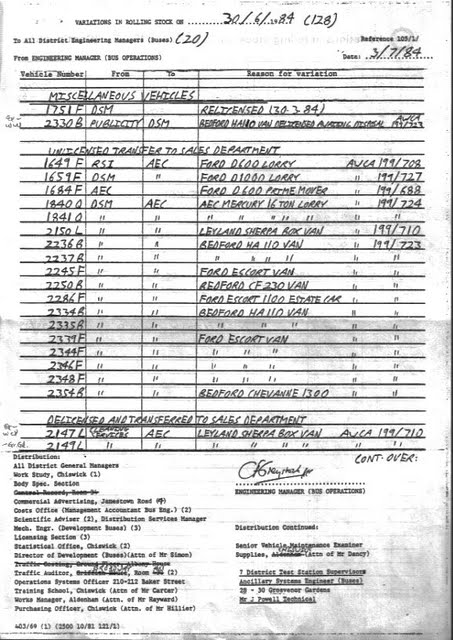 VARIATIONS IN ROLLING STOCK ON 30/6/1984 (128)
To All District Engineering Managers (Buses) (20) Reference 105/1/
From ENGINEERING MANAGER (BUS OPERATIONS) Date: 3/7/84
Vehicle Number From To Reason for variation
MISCELLANEOUS VEHICLES
1751 F DSM RELICENSED (30.3.84)
2330 B PUBLICITY DSM BEDFORD HA110 VAN DELICENSED AWAITING DISPOSAL AWCA 199/723
UNLICENSED TRANSFER TO SALES DEPARTMENT
1649 F RSI AEC FORD D600 LORRY AWCA 199/708
1659 F DSM " FORD D1000 LORRY " 199/727
1684 F AEC FORD D600 PRIME MOVER " 199/688
1840 Q DSM AEC AEC MERCURY 16 TON LORRY " 199/724
1841 Q " " " " " " "
2150 L " " LEYLAND SHERPA BOX VAN " 199/710
2236 B " " BEDFORD HA 110 VAN " 199/723
2237 B " " " " " " "
2245 F " " FORD ESCORT VAN " "
2250 B " " BEDFORD CF 230 VAN " "
2286 F " " FORD ESCORT 1100 ESTATE CAR " "
2334 B " " BEDFORD HA 110 VAN " "
2335 B " " " " " " "
2339 F " " FORD ESCORT VAN " "
2344 F " " " " " " "
2346 F " " " " " " "
2348 F " " " " " " "
2354 B " " BEDFORD CHEVANNE 1300 " "
DELICENSED AND TRANSFERRED TO SALES DEPARTMENT
2147 L CLEANING SERVICES AEC LEYLAND SHERPA BOX VAN AWCA 199/710
2149 L " " " " " " " "
CONT. OVER:
Distribution:
All District General Managers
Work Study, Chiswick (1)
Body Spec. Section ENGINEERING MANAGER (BUS OPERATIONS)
General Record, Room 34
Commercial Advertising, Jamestown Road
Costs Office (Management Accountant Bus Eng.) (2)
Scientific Adviser (2), Distribution Services Manager
Mech. Engr. (Development Buses) (3) Distribution Continued:
Licensing Section (3)
Statistical Office, Chiswick (2) Senior Vehicle Maintenance Examiner
Director of Development (Buses)(Attn of Mr Simon) Supplies, Aldenham (Attn of Mr Dancy)
Traffic Costing, Albany House
Traffic Auditor, House, Room (2) 7 District Test Station Supervisors
Operations Systems Officer 210-212 Baker Street Ancillary Systems Engineer (Buses)
Training School, Chiswick (Attn of Mr Carter) 28 - 30 Grosvenor Gardens
Works Manager, Aldenham (Attn of Mr Hayward) Mr J Powell Technical
Purchasing Officer, Chiswick (Attn of Mr Hillier)
403/69 (1) (2500 10/81 121/1)